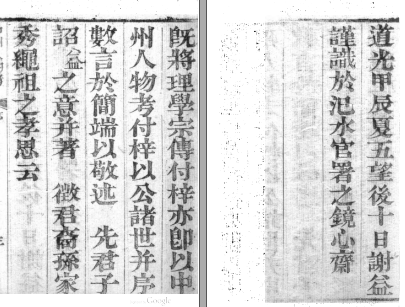 既將理學宗傳付梓亦卽以中
州人物考付梓以公諸世并序
數言於簡端以敬述 先君子
詔益之意并著 徵君裔孫家
秀繩祖之孝思云
道光甲辰夏五望後十日謝益
謹識於汜水官署之鏡心齋
Google